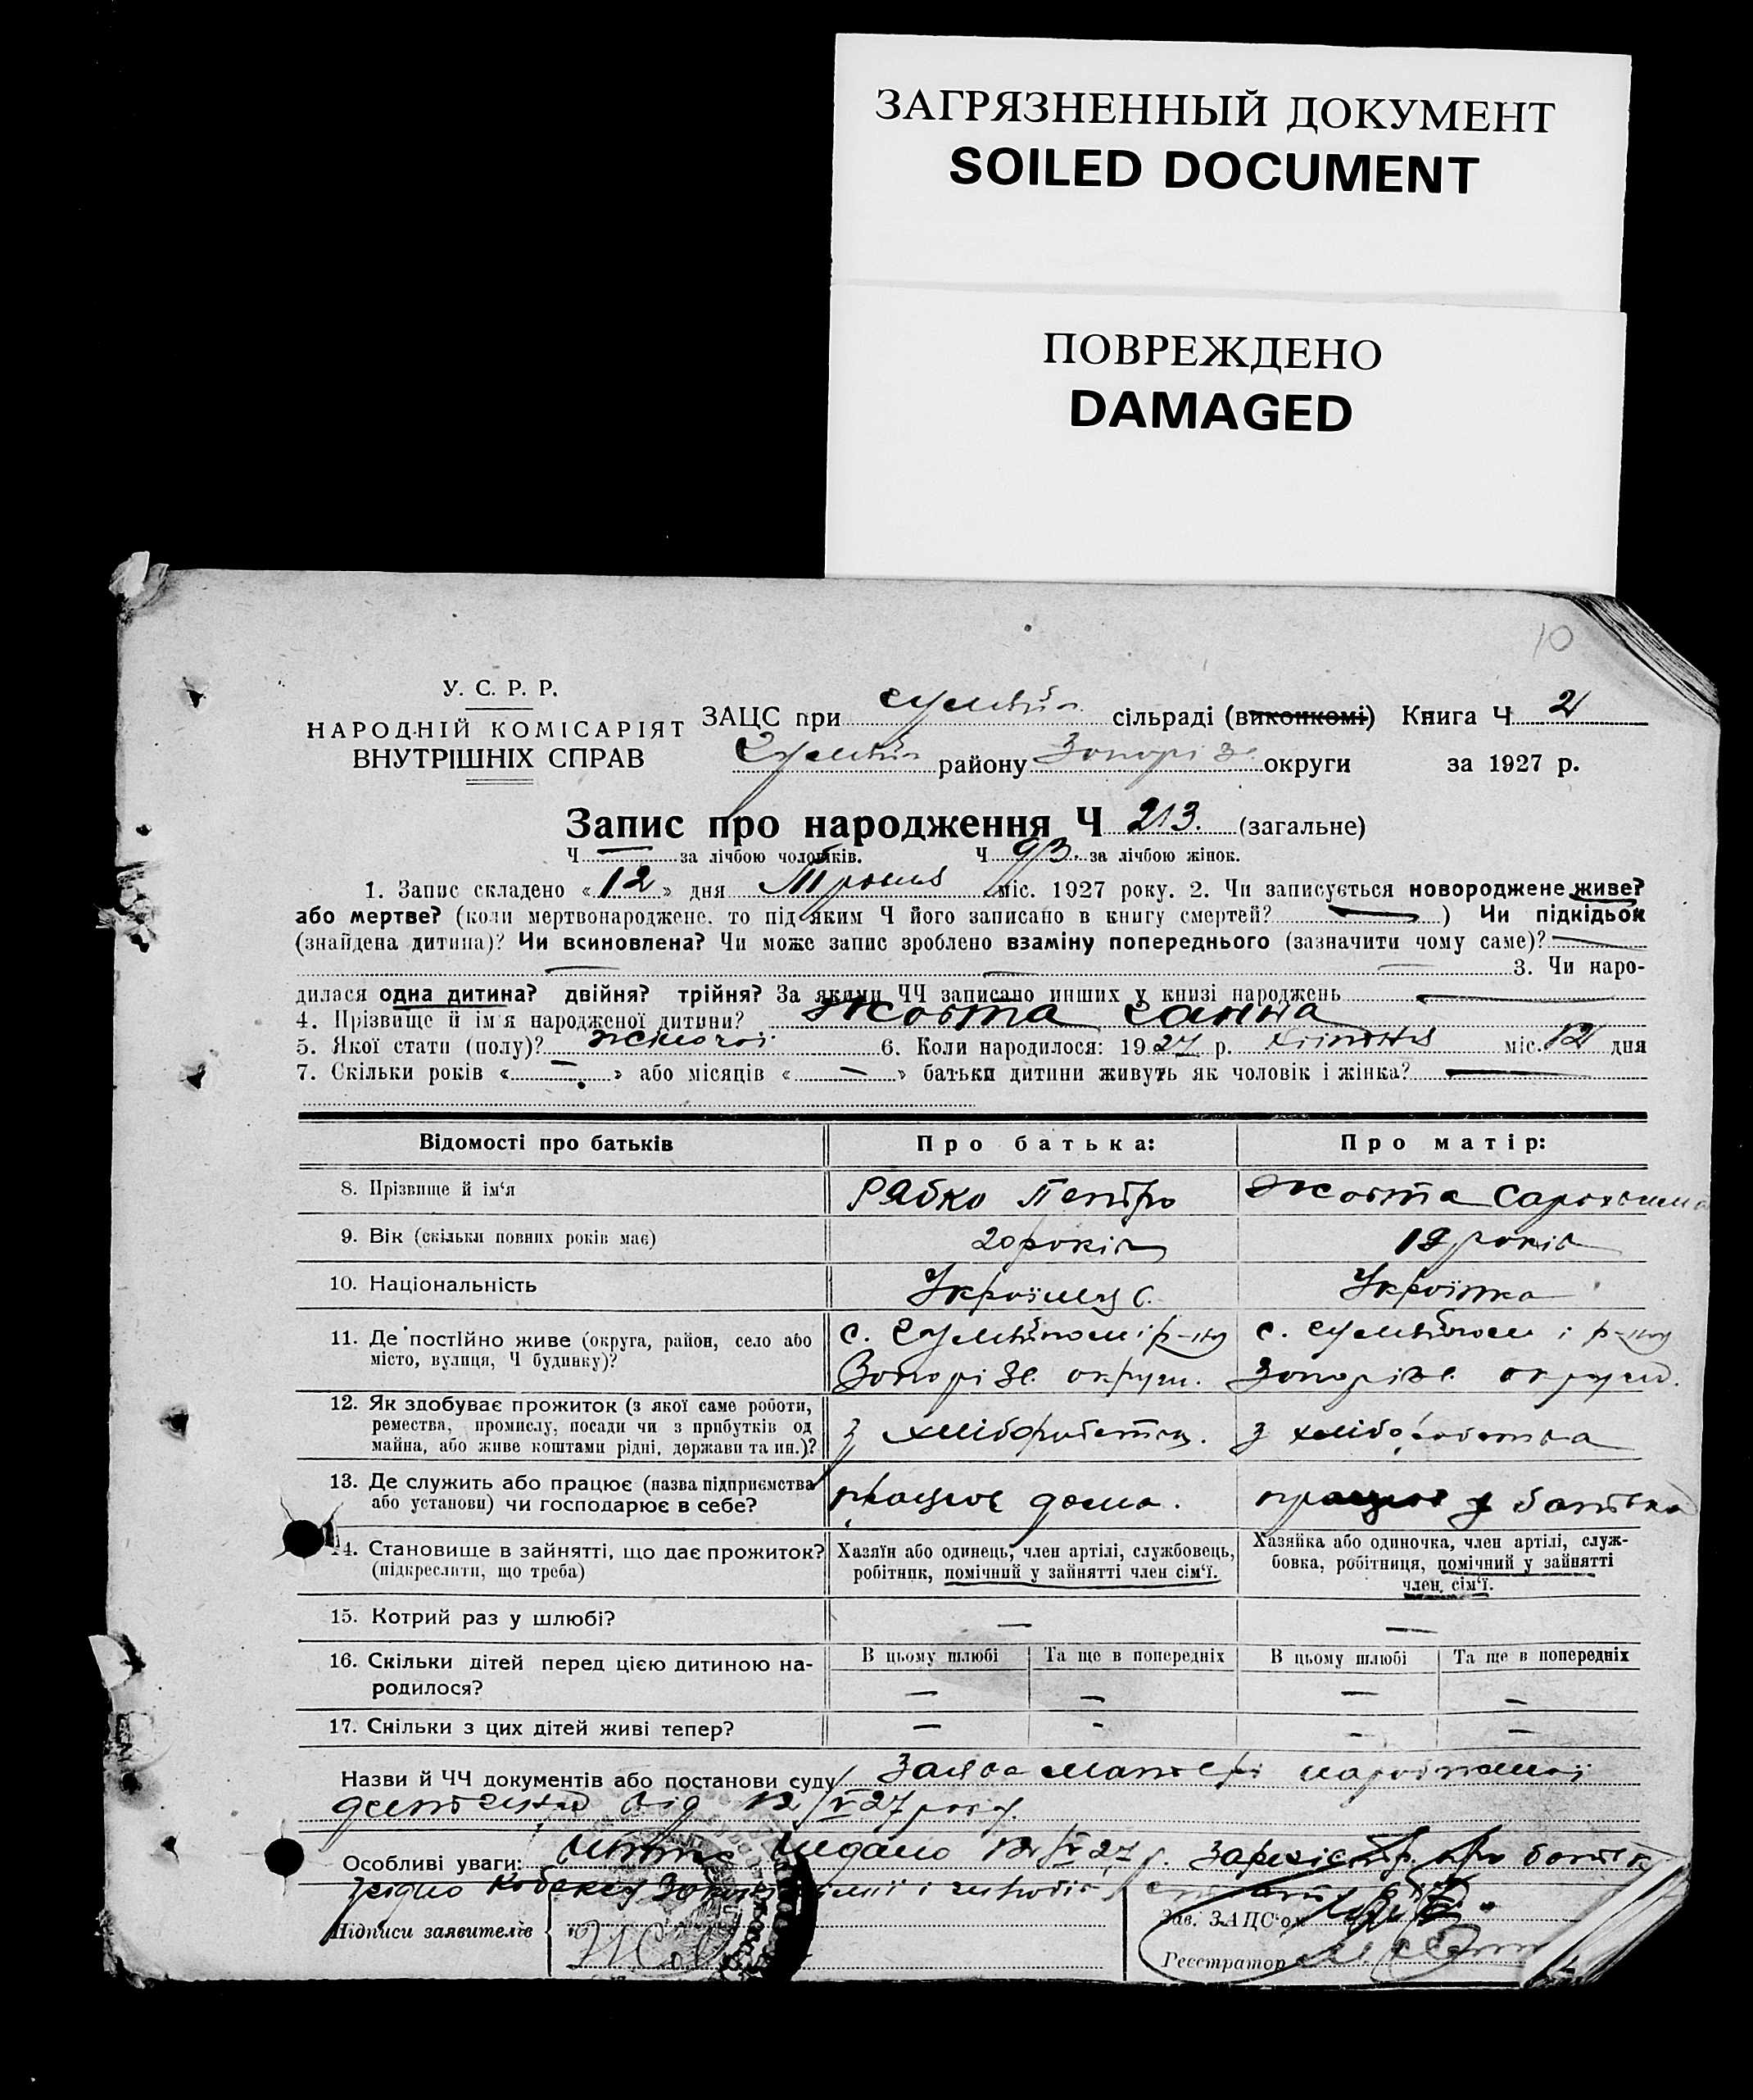 ЗАГРЯЗНЕННЫЙ ДОКУМЕНТ
SOILED DOCUMENT
ПОВРЕЖДЕНО
DAMAGED
10
У. С. Р. Р.
НАРОДНІЙ КОМІСАРІЯТ
ВНУТРІШНІХ СПРАВ
ЗАЦС при сільраді (виконкомі) Книга Ч 2
району Запоріз. округи за 1927 р.
Запис про народження Ч 213. (загальне)
Ч — за лічбою чоловіків. Ч 93. за лічбою жінок.
1. Запис складено «12» дня Травня міс. 1927 року. 2. Чи записується новороджене живе?
або мертве? (коли мертвонароджене, то під яким Ч його записано в книгу смертей? —) Чи підкідьок
(знайдена дитина)? Чи всиновлена? Чи може запис зроблено взаміну попереднього (зазначити чому саме)? —
— — — 3. Чи наро-
дилася одна дитина? двійня? трійня? За якими ЧЧ записано инших у книзі народжень —
4. Прізвище й ім'я народженої дитини? Жовта Ганна
5. Якої стати (полу)? жіночої 6. Коли народилося: 1927 р. квітня міс. 12 дня
7. Скільки років «—» або місяців «—» батьки дитини живуть як чоловік і жінка? —
Відомості про батьків Про батька: Про матір:
8. Прізвище й ім'я Рябко Петро Жовта
9. Вік (скільки повних років має) 20 років 19 років
10. Національність Українец. Українка
11. Де постійно живе (округа, район, село або
місто, вулиця, Ч будинку)?
с. і р-ну
Запоріз. округи.
с. і р-ну
Запоріз. округи.
12. Як здобуває прожиток (з якої саме роботи,
ремества, промислу, посади чи з прибутків од
майна, або живе коштами рідні, держави та ин.)?
з хліборобства.
з хліборобства
13. Де служить або працює (назва підприємства
або установи) чи господарює в себе?
працює дома.
працює у батька
14. Становище в зайнятті, що дає прожиток?
(підкреслити, що треба)
Хазяїн або одинець, член артілі, службовець,
робітник, помічний у зайнятті член сім'ї.
Хазяйка або одиночка, член артілі, служ-
бовка, робітниця, помічний у зайнятті
член сім'ї.
15. Котрий раз у шлюбі? — —
16. Скільки дітей перед цією дитиною на-
родилося?
В цьому шлюбі Та ще в попередніх В цьому шлюбі Та ще в попередніх
— — — —
17. Скільки з цих дітей живі тепер? — - — —
Назви й ЧЧ документів або постанови суду Заява матері
від 12/V 27 року.
Особливі уваги: видано 12/V 27 р. Зареєстр. про батька
Згідно Кодексу
Підписи заявителів
Зав. ЗАЦС'ом
Реєстратор